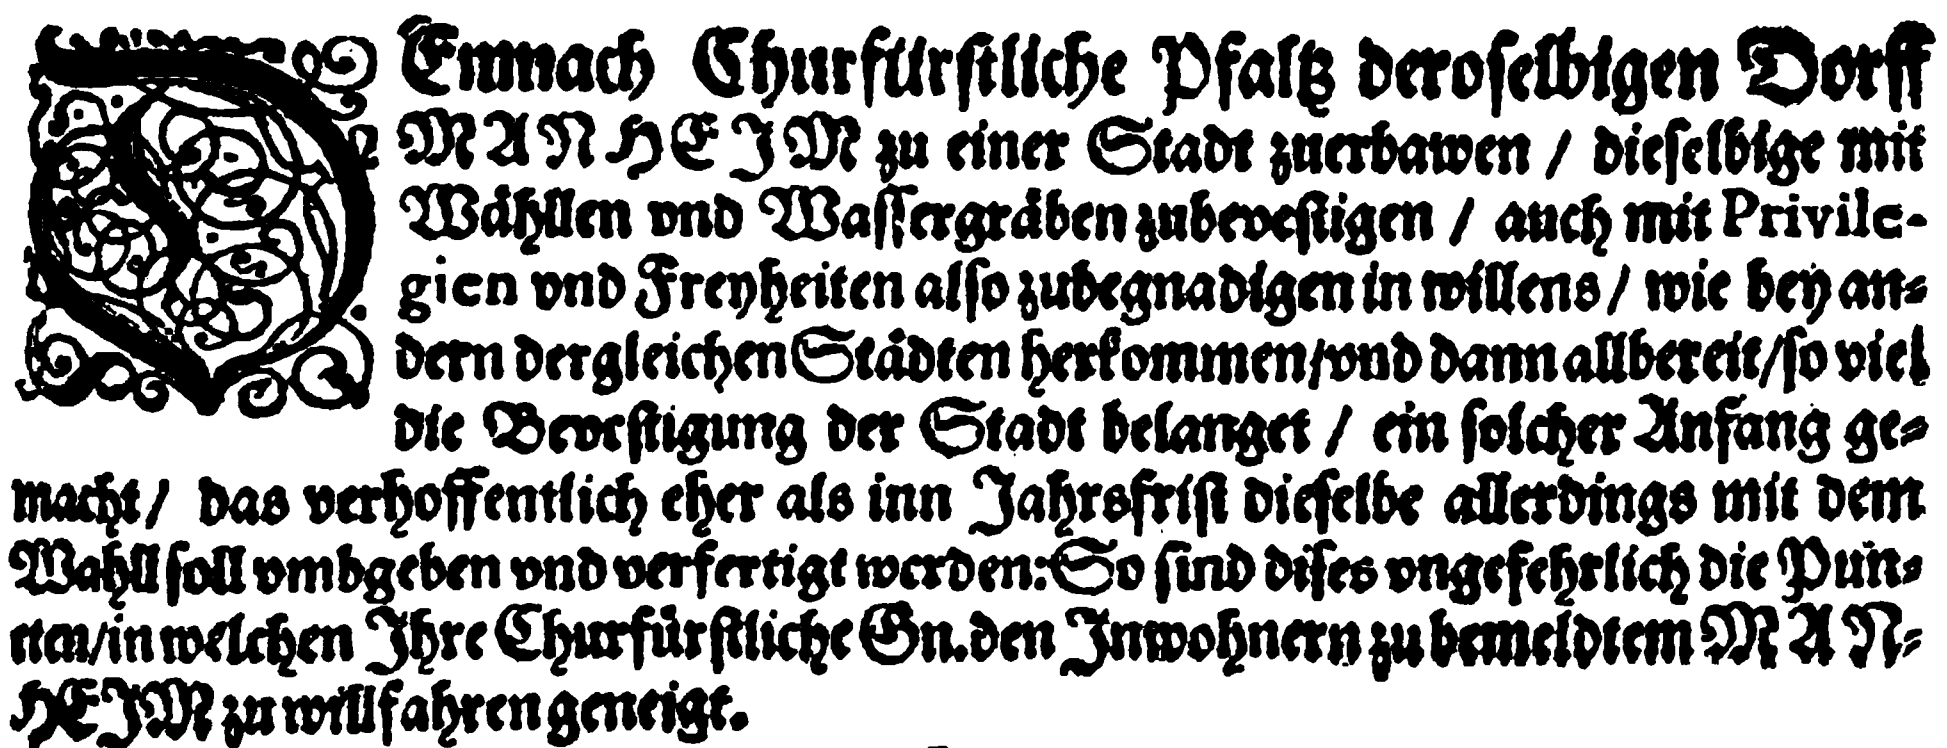 DEmnach Churfürstliche Pfaltz deroselbigen Dorff
MANHEIM zu einer Stadt zuerbawen / dieselbige mit
Wähllen vnd Wassergräben zubevestigen / auch mit Privile-
gien vnd Freyheiten also zubegnadigen in willens / wie bey an-
dern dergleichen Städten herkommen / vnd dann allbereit / so viel
die Bevestigung der Stadt belanget / ein solcher Anfang ge-
macht / das verhoffentlich eher als inn Jahrsfrist dieselbe allerdings mit dem
Wahll soll vmbgeben vnd verfertigt werden: So sind dises vngefehrlich die Pun-
cten / in welchen Ihre Churfürstliche Gn. den Inwohnern zu bemeldtem MAN-
HEIM zu willfahren geneigt.